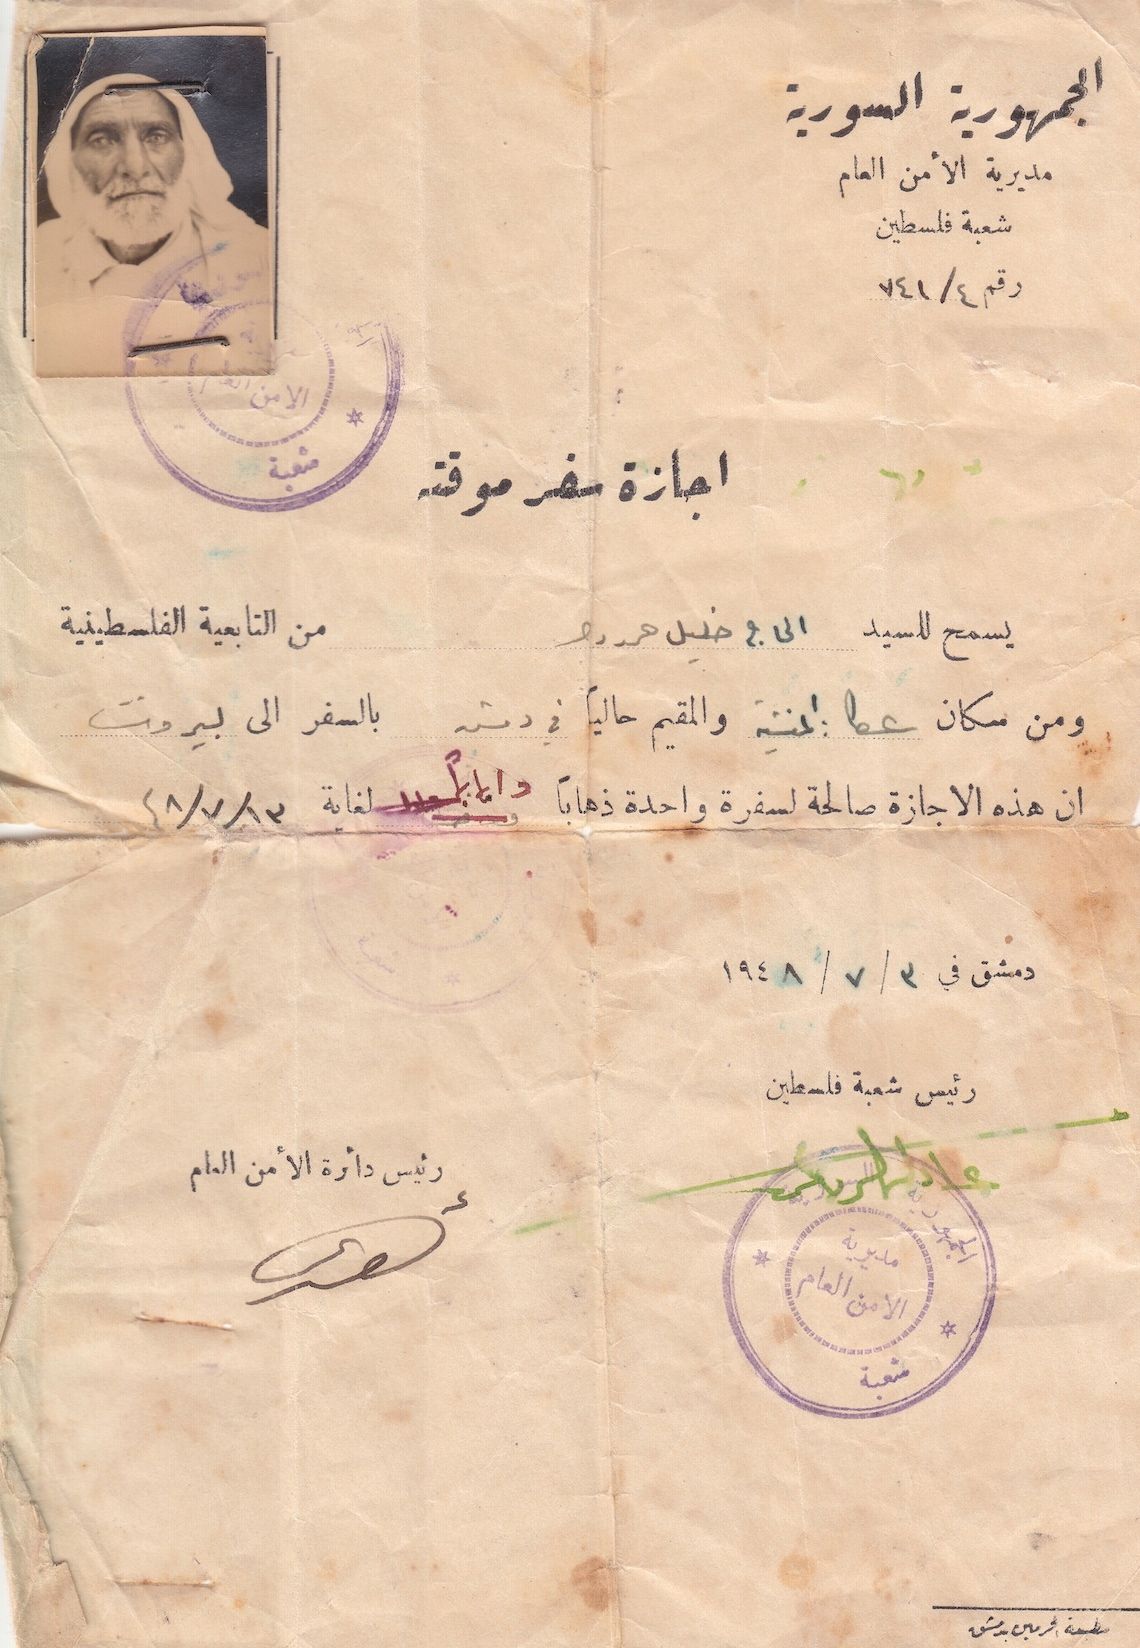 الجمهورية السورية
مديرية الأمن العام
شعبة فلسطين
رقم ٧٤١/٤
الامن العام
شعبة
اجازة سفر موقته
يسمح للسيد الحاج خليل من التابعية الفلسطينية
ومن سكان عكا : المنشية والمقيم حالياً في دمشق بالسفر الى بيروت
ان هذه الاجازة صالحة لسفرة واحدة ذهاباً واياباً لغاية ١٣/٧/٤٨
دمشق في ٣ / ٧ / ١٩٤٨
رئيس شعبة فلسطين
رئيس دائرة الأمن العام
الجمهورية السورية
مديرية
الامن العام
شعبة
مطبعة الحرمين بدمشق